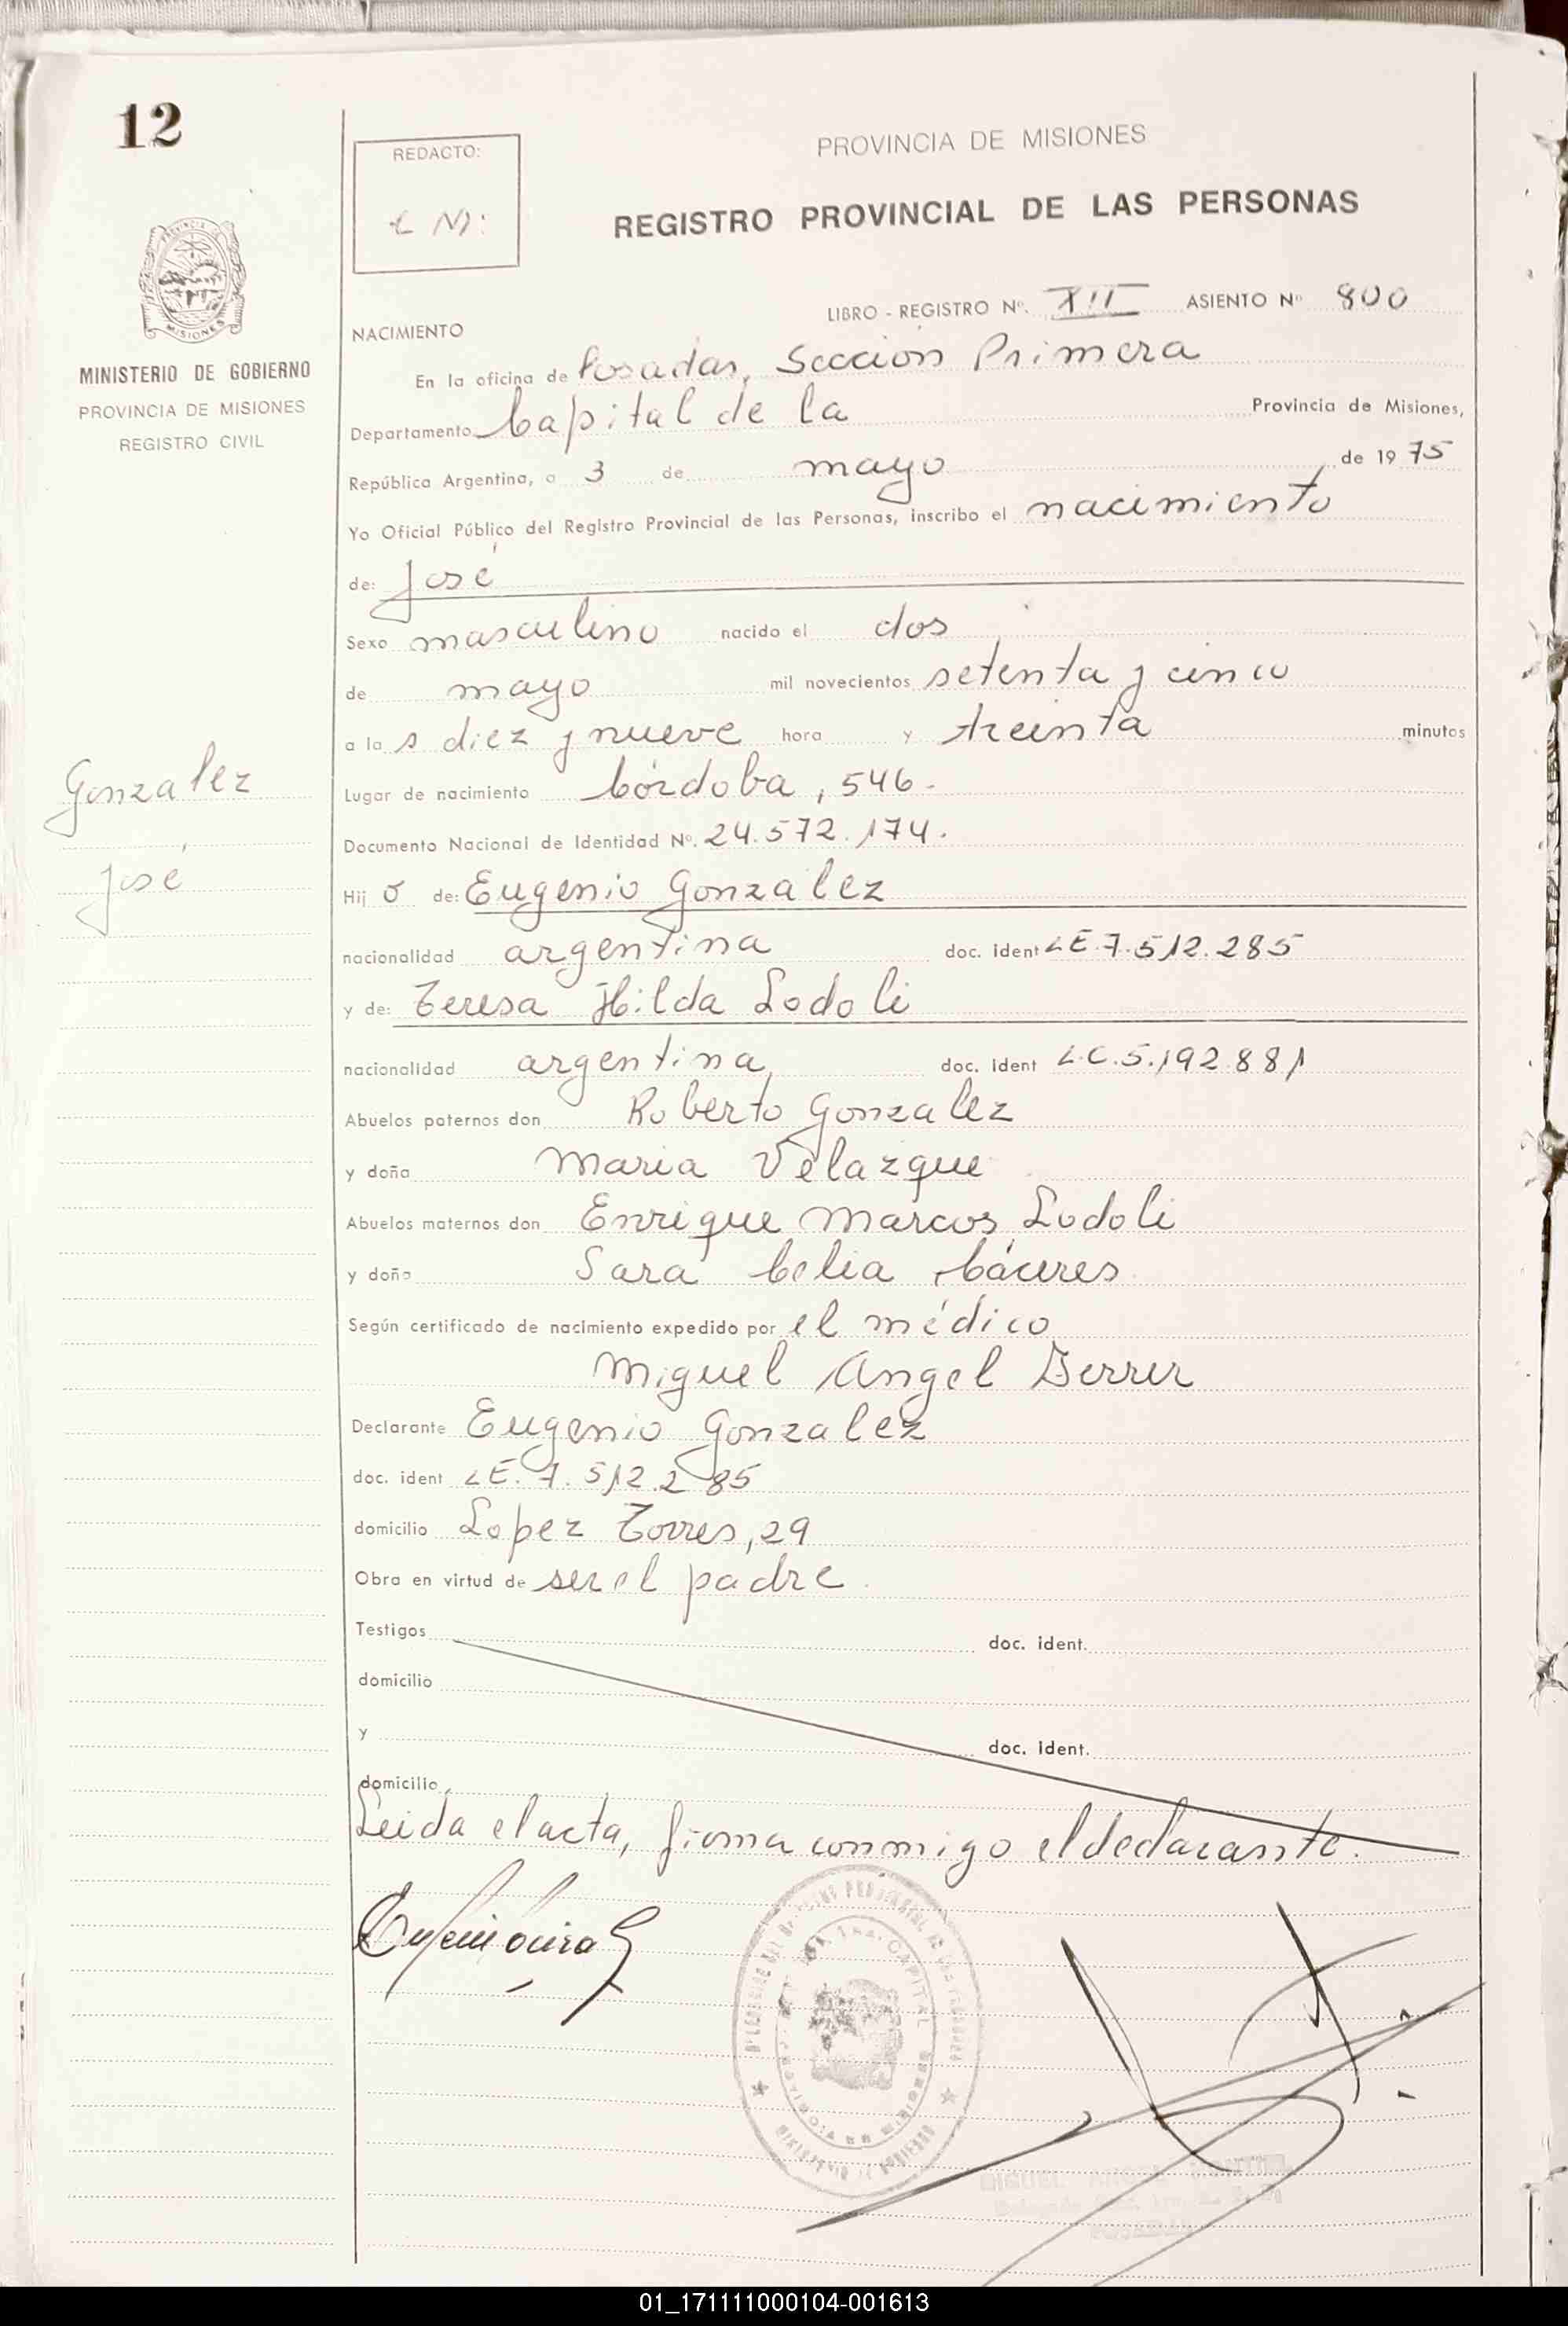 12
REDACTO:
PROVINCIA DE MISIONES
REGISTRO PROVINCIAL DE LAS PERSONAS
MISIONES
MINISTERIO DE GOBIERNO
PROVINCIA DE MISIONES
REGISTRO CIVIL
LIBRO - REGISTRO Nº. XII ASIENTO Nº 800
NACIMIENTO
En la oficina de Posadas, Sección Primera
Departamento Capital de la Provincia de Misiones,
República Argentina, a 3 de mayo de 1975
Yo Oficial Público del Registro Provincial de las Personas, inscribo el nacimiento
de: José
Sexo masculino nacido el dos
de mayo mil novecientos setenta y cinco
a la s diez y nueve hora y treinta minutos
Gonzalez
José
Lugar de nacimiento Córdoba, 546.
Documento Nacional de Identidad Nº. 24.572.174.
Hij o de: Eugenio Gonzalez
nacionalidad argentina doc. ident LE.7.512.285
y de: Teresa Hilda Lodoli
nacionalidad argentina doc. ident L.C.5.192.881
Abuelos paternos don Roberto Gonzalez
y doña Maria Velazque
Abuelos maternos don Enrique Marcos Lodoli
y doña Sara Celia Cáceres
Según certificado de nacimiento expedido por el médico
Miguel Angel
Declarante Eugenio Gonzalez
doc. ident LE.7.512.285
domicilio Lopez Torres, 29
Obra en virtud de ser el padre.
Testigos doc. ident.
domicilio
y doc. ident.
domicilio
Leida el acta, firma conmigo el declarante.
01_171111000104-001613